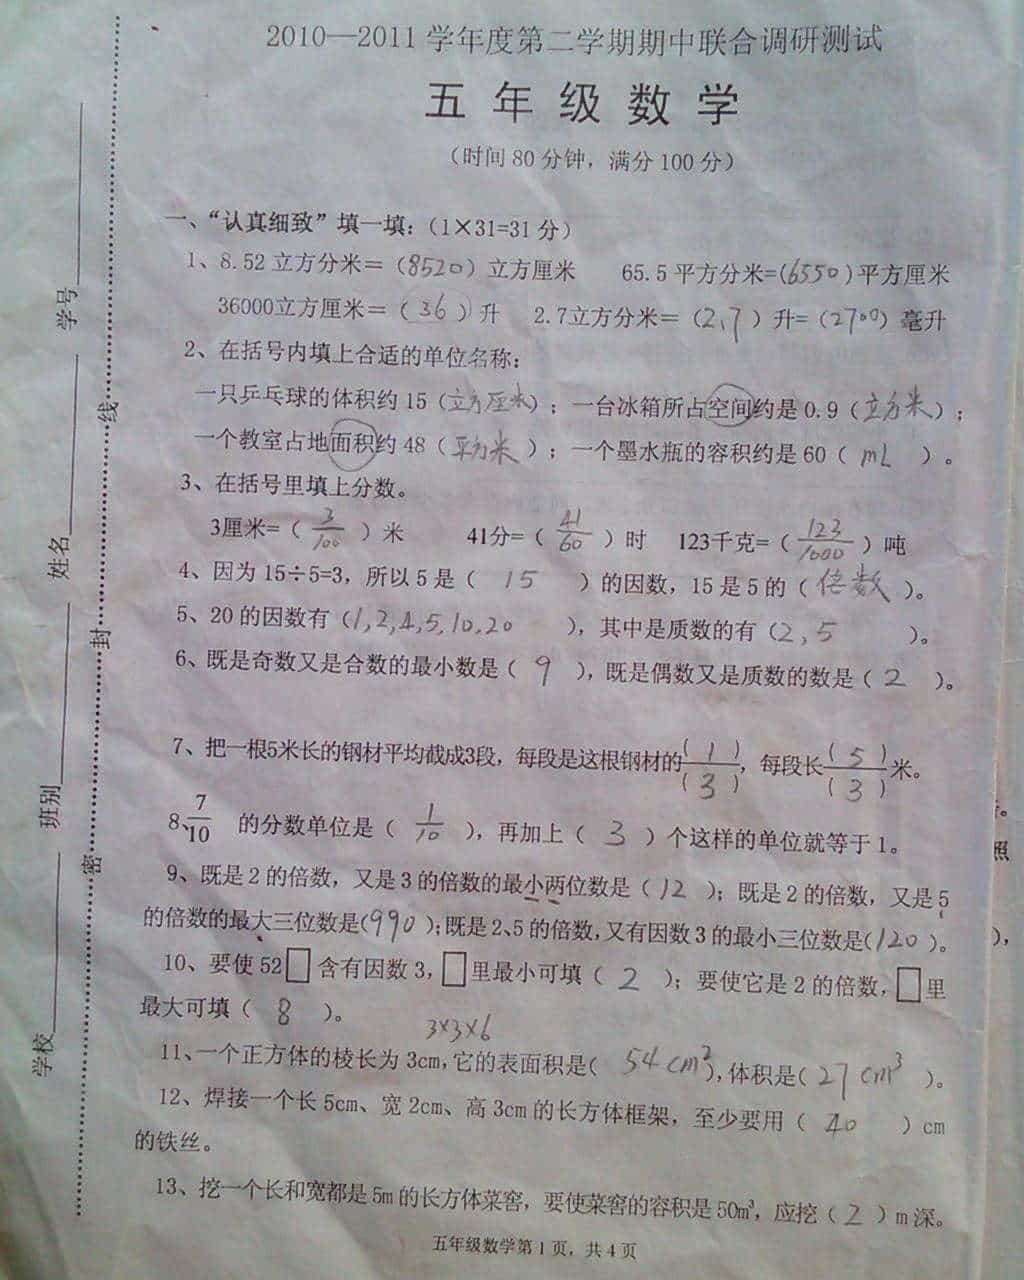 2010—2011学年度第二学期期中联合调研测试
五年级数学
（时间80分钟，满分100分）
一、“认真细致”填一填：（1×31=31分）
1、8.52立方分米＝（8520）立方厘米 65.5平方分米=(6550)平方厘米
36000立方厘米＝（36）升 2.7立方分米＝（2.7）升=（2700）毫升
2、在括号内填上合适的单位名称：
一只乒乓球的体积约15（立方厘米）；一台冰箱所占空间约是0.9（立方米）；
一个教室占地面积约48（平方米）；一个墨水瓶的容积约是60（mL）。
3、在括号里填上分数。
3厘米=（3/100）米 41分=（41/60）时 123千克=（123/1000）吨
4、因为15÷5=3，所以5是（15）的因数，15是5的（倍数）。
5、20的因数有（1,2,4,5,10,20），其中是质数的有（2,5）。
6、既是奇数又是合数的最小数是（9），既是偶数又是质数的数是（2）。
7、把一根5米长的钢材平均截成3段，每段是这根钢材的(1)/(3)，每段长(5)/(3)米。
8、7/10 的分数单位是（1/10），再加上（3）个这样的单位就等于1。
9、既是2的倍数，又是3的倍数的最小两位数是（12）；既是2的倍数，又是5
的倍数的最大三位数是(990)；既是2、5的倍数，又有因数3的最小三位数是(120)。
10、要使52□含有因数3，□里最小可填（2）；要使它是2的倍数，□里
最大可填（8）。
3×3×6
11、一个正方体的棱长为3cm，它的表面积是(54cm²)，体积是(27cm³)。
12、焊接一个长5cm、宽2cm、高3cm的长方体框架，至少要用（40）cm
的铁丝。
13、挖一个长和宽都是5m的长方体菜窖，要使菜窖的容积是50m³，应挖（2）m深。
五年级数学第1页，共4页
学校 班别 姓名 学号
密 封 线
照